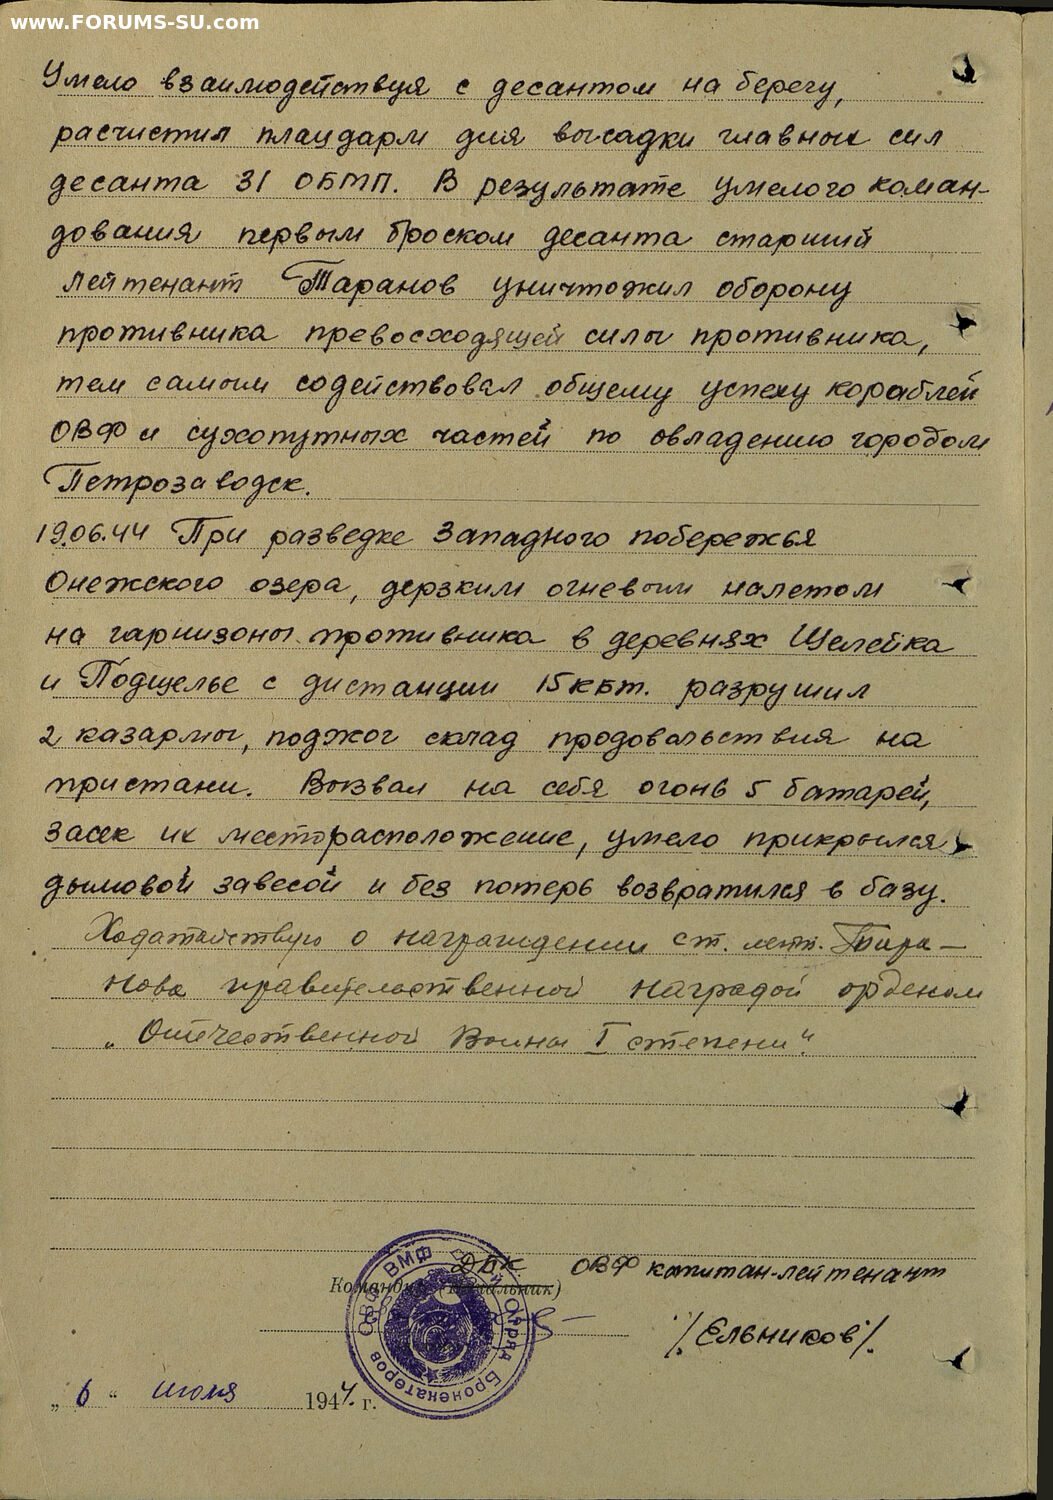 www.FORUMS-SU.com
Умело взаимодействуя с десантом на берегу,
расчистил плацдарм для высадки главных сил
десанта 31 ОБМП. В результате умелого коман-
дования первым броском десанта старший
лейтенант Таранов уничтожил оборону
противника превосходящей силы противника,
тем самым содействовал общему успеху кораблей
ОВФ и сухопутных частей по овладению городом
Петрозаводск.
19.06.44 При разведке Западного побережья
Онежского озера, дерзким огневым налетом
на гарнизоны противника в деревнях Щелейка
и Подщелье с дистанции 15 кбт. разрушил
2 казармы, поджог склад продовольствия на
пристани. Вызвал на себя огонь 5 батарей,
засек их месторасположение, умело прикрылся
дымовой завесой и без потерь возвратился в базу.
Ходатайствую о награждении ст. лейт. Тара-
нова правительственной наградой орденом
„Отечественной Войны I степени".
ДБК ОВФ капитан-лейтенант
Командир (Начальник)
/Ельников/.
ВМФ Отряд Бронекатеров ОВФ
„6" июля 1944 г.